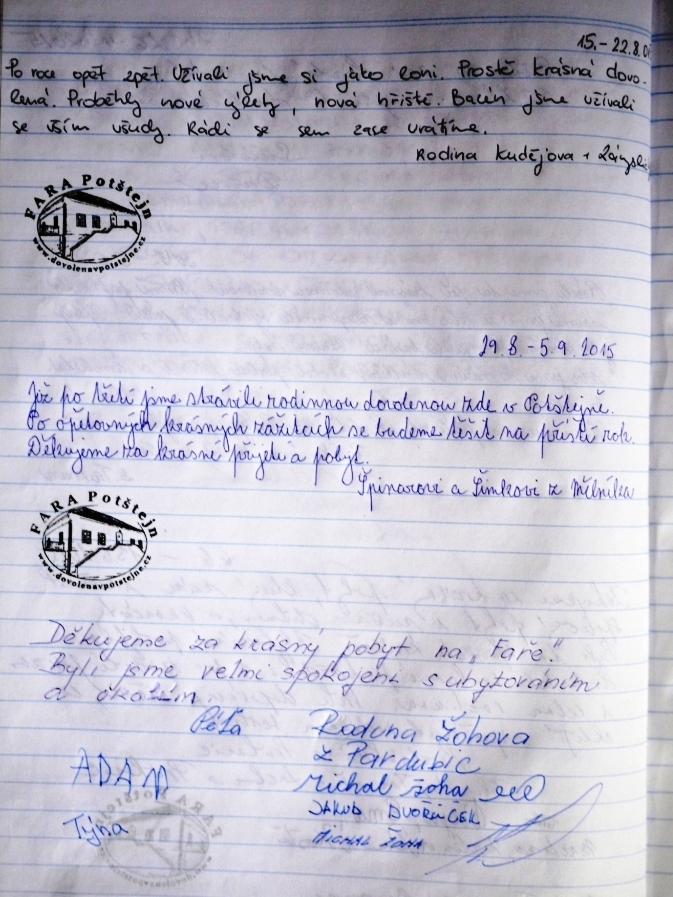 15.-22.8.
Po roce opět zpět. Užívali jsme si jako loni. Prostě krásná dovo-
lená. Proběhly nové výlety, nová hřiště. Bazén jsme užívali
se vším všudy. Rádi se sem zase vrátíme.
Rodina Kudějova +
FARA Potštejn
www.dovolenavpotstejne.cz
29.8.-5.9.2015
Již po třetí jsme strávili rodinnou dovolenou zde v Potštejně.
Po opětovných krásných zážitcích se budeme těšit na příští rok.
Děkujeme za krásné přijetí a pobyt.
Špinarovi a Šimkovi z Mělníka
FARA Potštejn
www.dovolenavpotstejne.cz
Děkujeme za krásný pobyt na „Faře."
Byli jsme velmi spokojeni s ubytováním
a okolím.
Péťa Rodina Žohova
z Pardubic
ADAM Michal Žoha
JAKUB DVOŘÁČEK
Týna MICHAL ŽOHA
FARA Potštejn
www.dovolenavpotstejne.cz